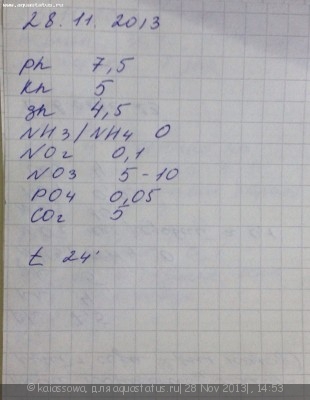 www.aquastatus.ru
28.11.2013
ph 7,5
kh 5
gh 4,5
NH3/NH4 0
NO2 0,1
NO3 5-10
PO4 0,05
CO2 5
t 24°
© kaiassowa, для aquastatus.ru| 28 Nov 2013|, 14:53